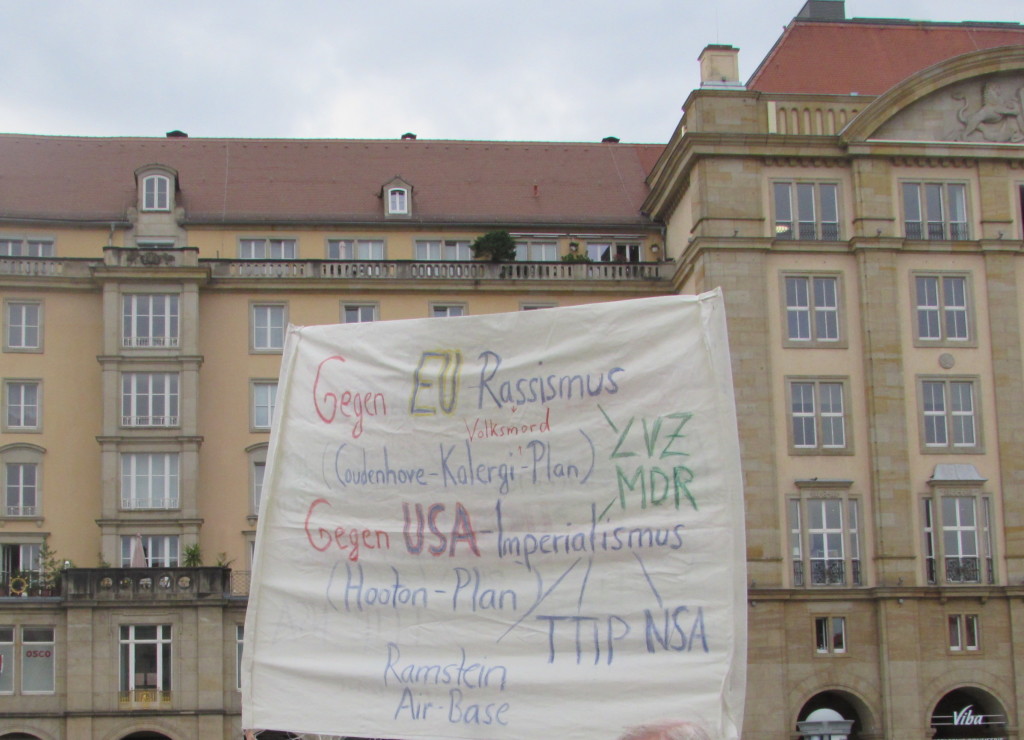 Gegen EU-Rassismus
Volksmord
(Coudenhove-Kalergi-Plan)
LVZ
MDR
Gegen USA-Imperialismus
(Hooton-Plan)
TTIP NSA
Ramstein
Air-Base
OSCO
Viba